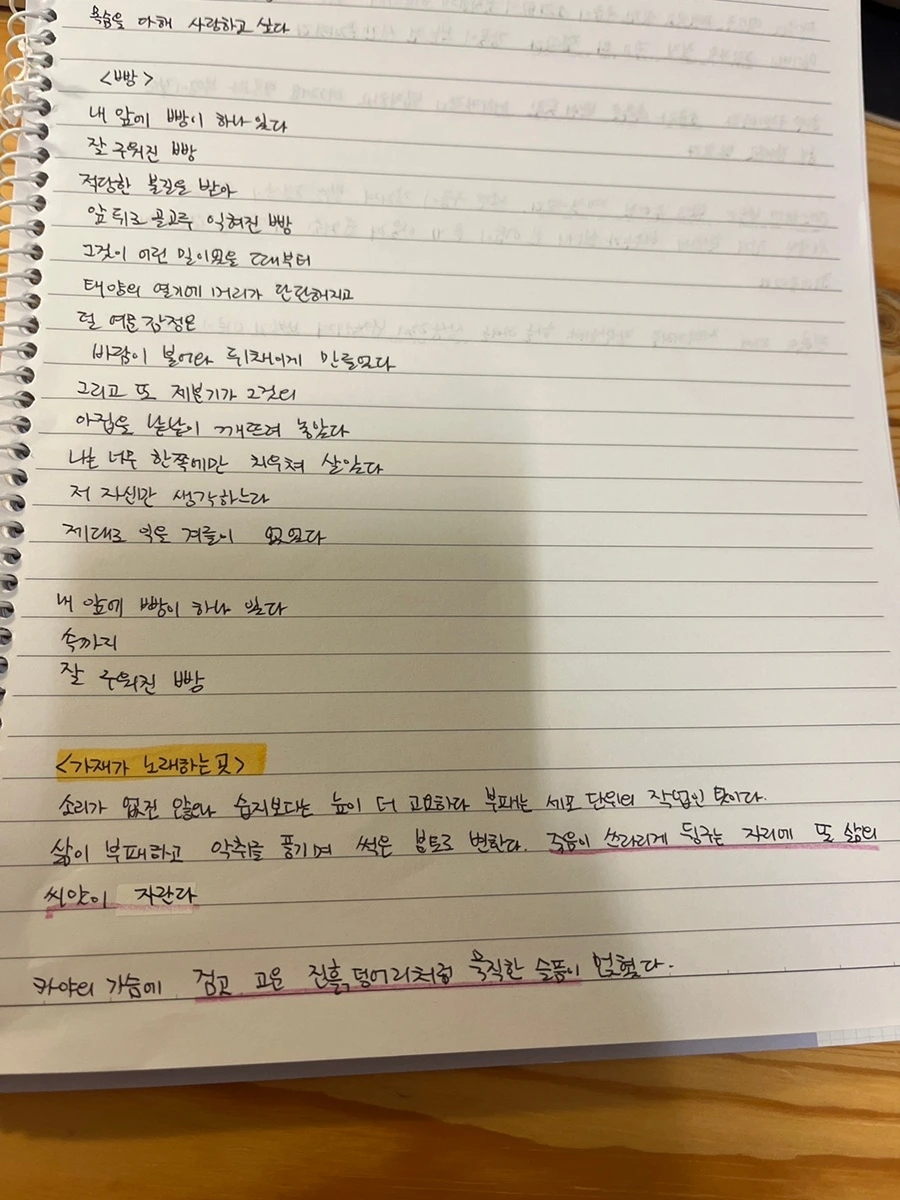 목숨을 다해 사랑하고 싶다
<빵>
내 앞에 빵이 하나 있다
잘 구워진 빵
적당한 불길을 받아
앞 뒤로 골고루 익혀진 빵
그것이 어린 밀이었을 때부터
태양의 열기에 머리가 단단해지고
덜 여문 감정은
바람이 불어와 뒤채이게 만들었다
그리고 또 제분기가 그것의
아집을 낱낱이 깨뜨려 놓았다
나는 너무 한쪽에만 치우쳐 살았다
저 자신만 생각하느라
제대로 익을 겨를이 없었다
내 앞에 빵이 하나 있다
속까지
잘 구워진 빵
<가재가 노래하는 곳>
소리가 없진 않으나 습지보다는 늪이 더 고요하다 부패는 세포 단위의 작업인 탓이다.
삶이 부패하고 악취를 풍기며 썩은 분토로 변한다. 죽음이 쓰라리게 뒹구는 자리에 또 삶의
씨앗이 자란다
카야의 가슴에 검고 고운 진흙 덩어리처럼 묵직한 슬픔이 얹혔다.